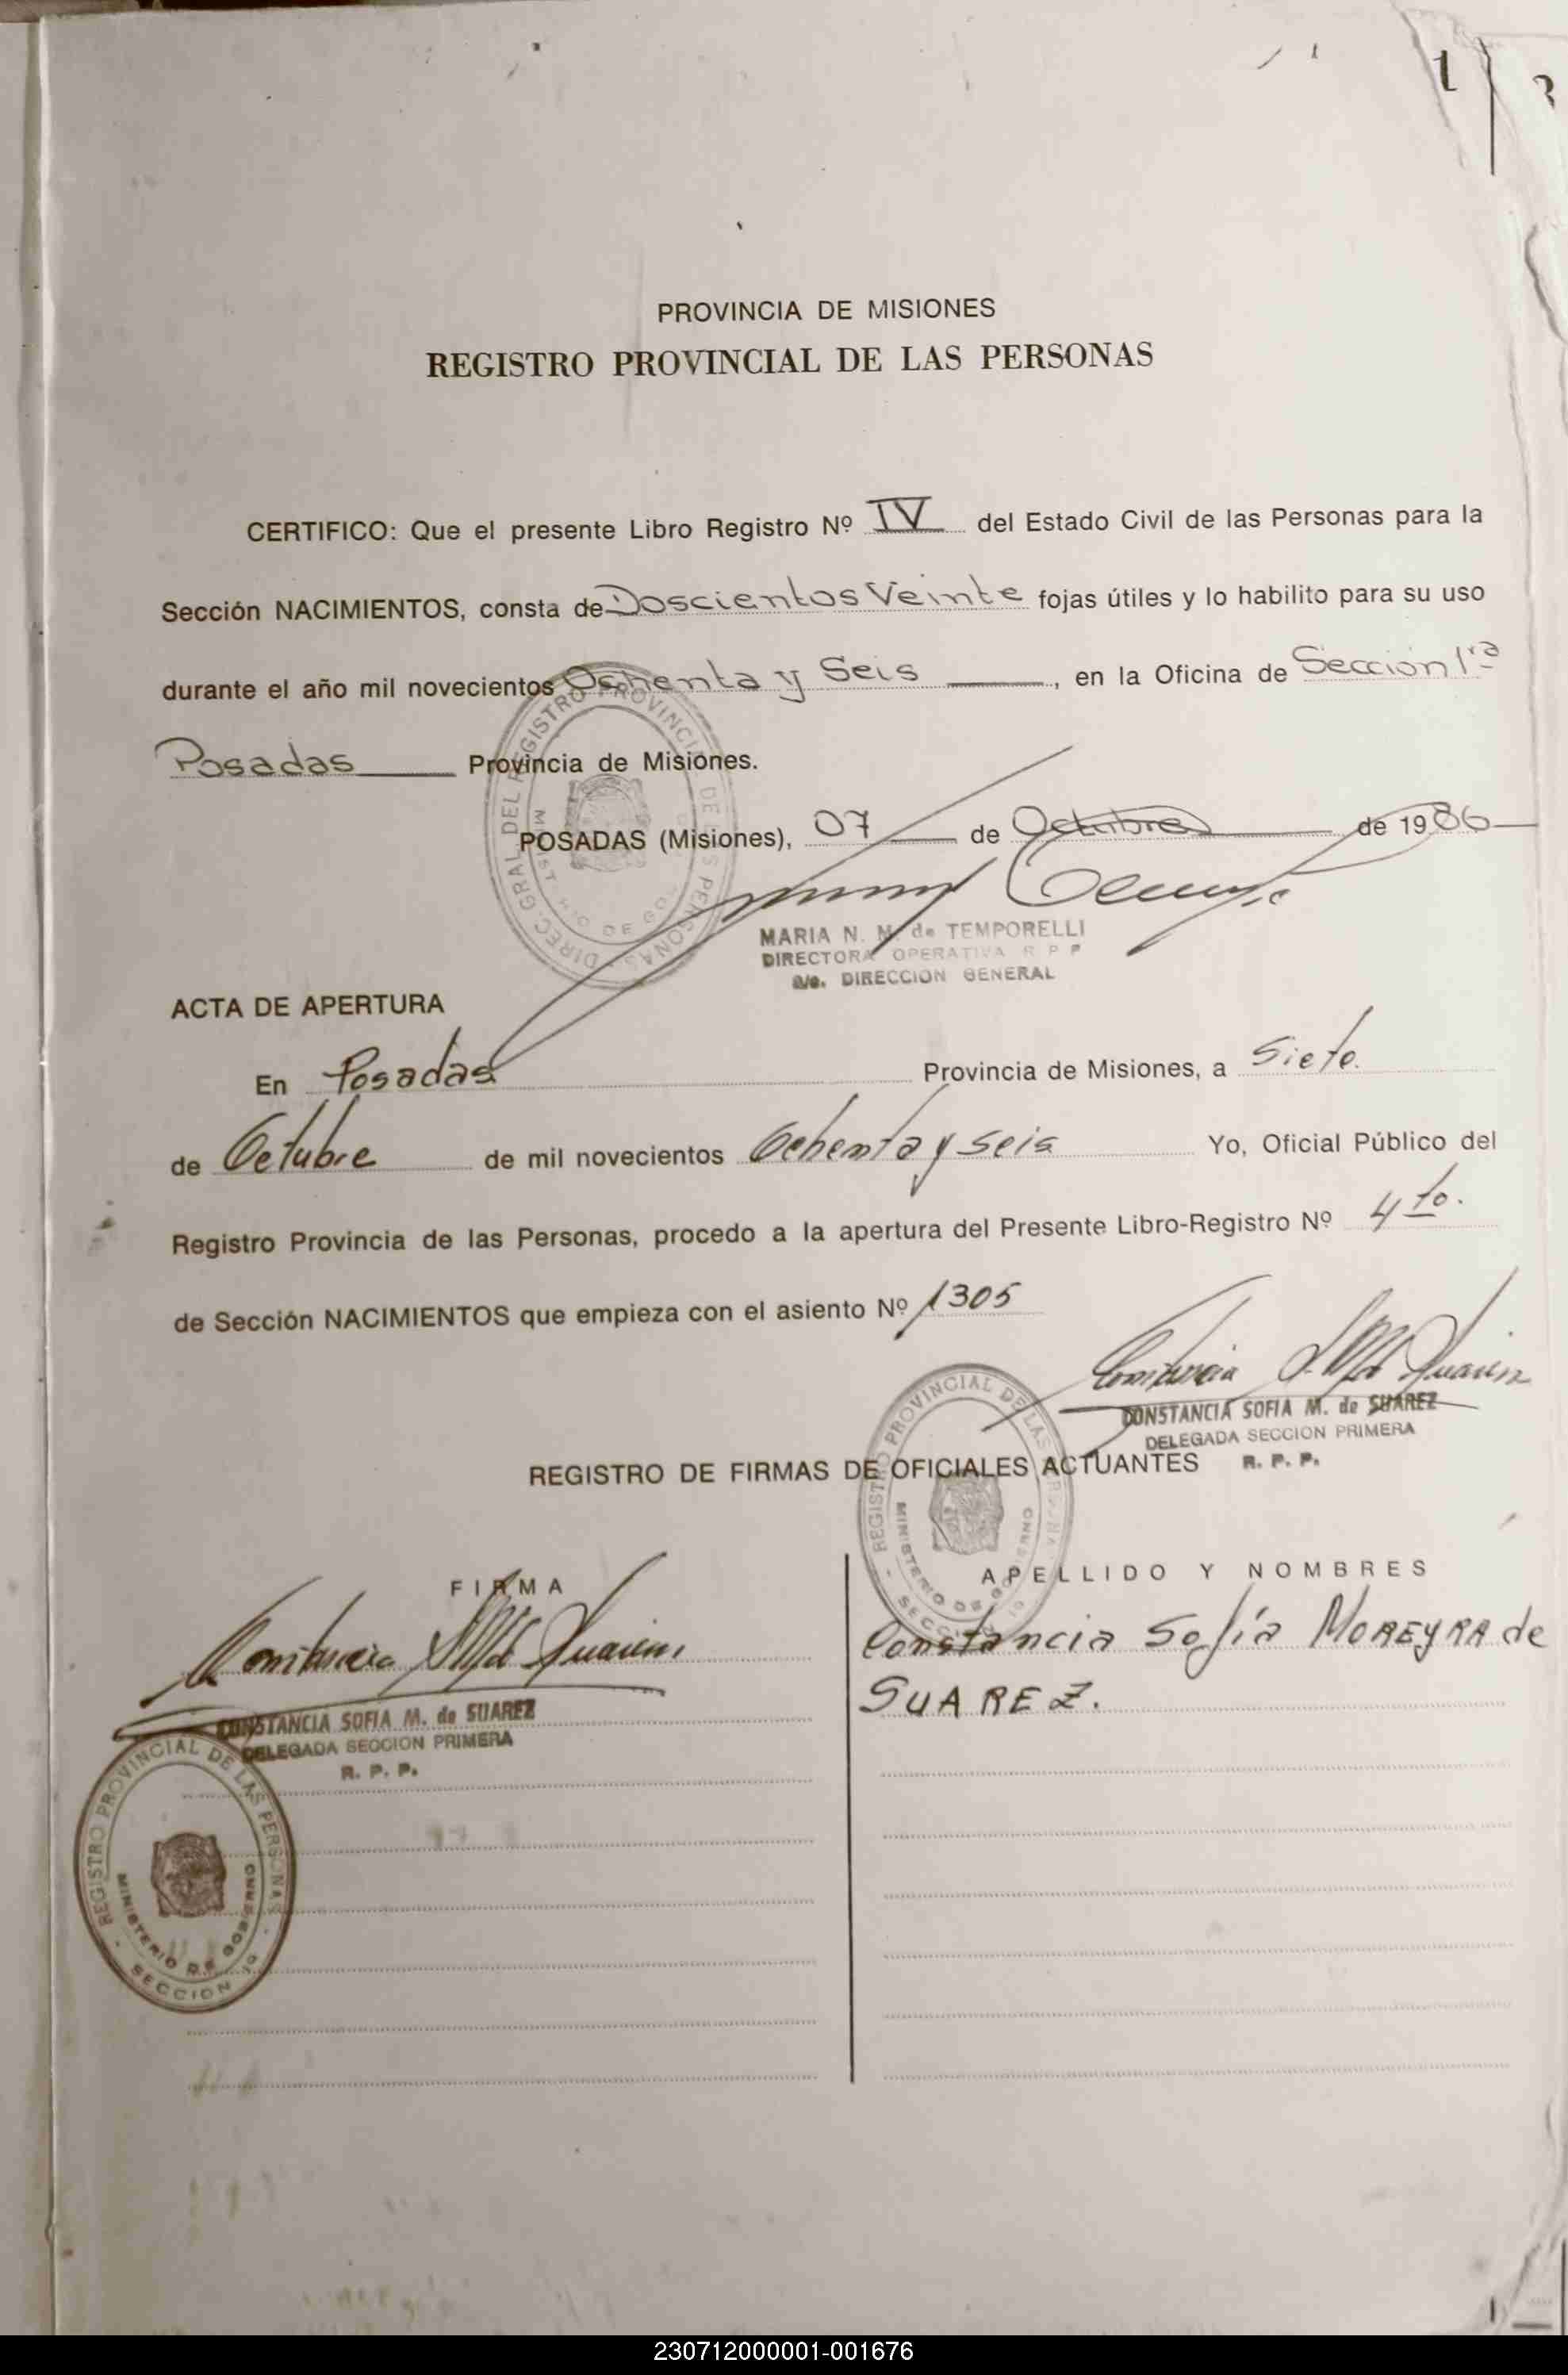 1
PROVINCIA DE MISIONES
REGISTRO PROVINCIAL DE LAS PERSONAS
CERTIFICO: Que el presente Libro Registro Nº IV del Estado Civil de las Personas para la
Sección NACIMIENTOS, consta de Doscientos Veinte fojas útiles y lo habilito para su uso
durante el año mil novecientos Ochenta y Seis, en la Oficina de Sección 1ra
Posadas Provincia de Misiones.
POSADAS (Misiones), 07 de Octubre de 1986
DIREC. GRAL. DEL REGISTRO PROVINCIAL DE LAS PERSONAS
MINISTERIO DE GOBIERNO
MARIA N. M. de TEMPORELLI
DIRECTORA OPERATIVA R P P
a/c. DIRECCION GENERAL
ACTA DE APERTURA
En Posadas Provincia de Misiones, a Siete
de Octubre de mil novecientos Ochenta y seis Yo, Oficial Público del
Registro Provincia de las Personas, procedo a la apertura del Presente Libro-Registro Nº 4to.
de Sección NACIMIENTOS que empieza con el asiento Nº 1305
CONSTANCIA SOFIA M. de SUAREZ
DELEGADA SECCION PRIMERA
R. P. P.
REGISTRO DE FIRMAS DE OFICIALES ACTUANTES
REGISTRO PROVINCIAL DE LAS PERSONAS
MINISTERIO DE GOBIERNO
FIRMA
APELLIDO Y NOMBRES
Constancia Sofía MOREYRA de
SUAREZ.
CONSTANCIA SOFIA M. de SUAREZ
DELEGADA SECCION PRIMERA
R. P. P.
REGISTRO PROVINCIAL DE LAS PERSONAS
MINISTERIO DE GOBIERNO
SECCION 1a
230712000001-001676